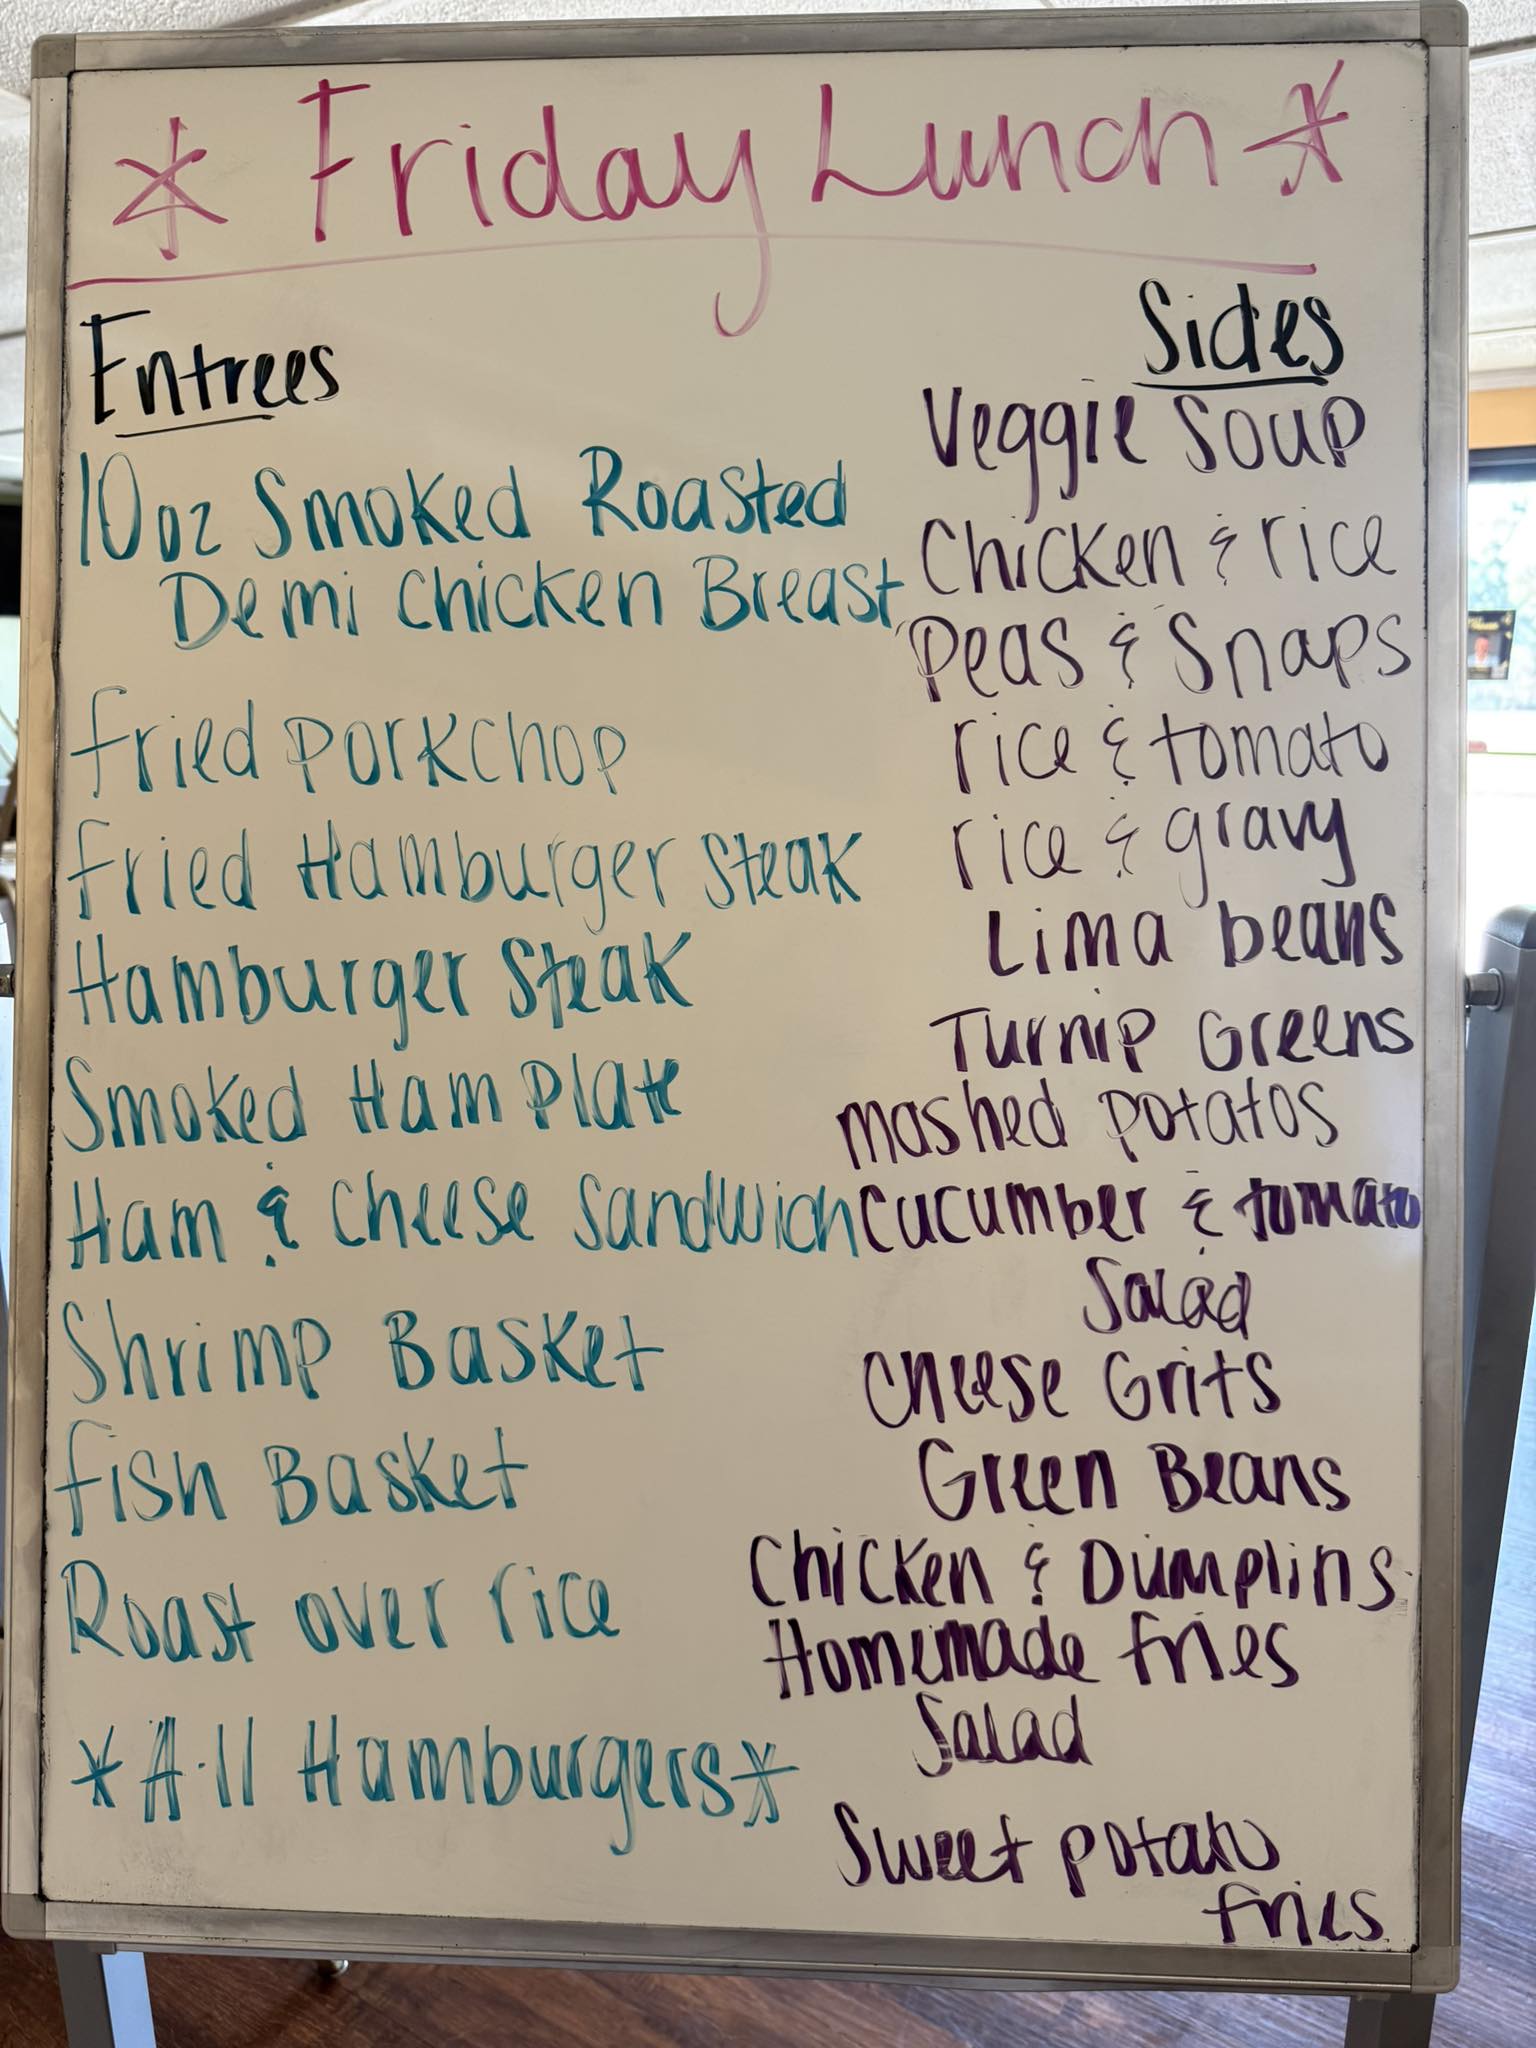 * Friday Lunch *
Entrees
10oz Smoked Roasted
Demi Chicken Breast
Fried Porkchop
Fried Hamburger Steak
Hamburger Steak
Smoked Ham Plate
Ham & Cheese Sandwich
Shrimp Basket
Fish Basket
Roast over rice
*All Hamburgers*
Sides
Veggie Soup
Chicken & rice
Peas & Snaps
rice & tomato
rice & gravy
Lima beans
Turnip Greens
mashed potatos
Cucumber & tomato
Salad
Cheese Grits
Green Beans
Chicken & Dumplins
Homemade fries
Salad
Sweet potato
fries